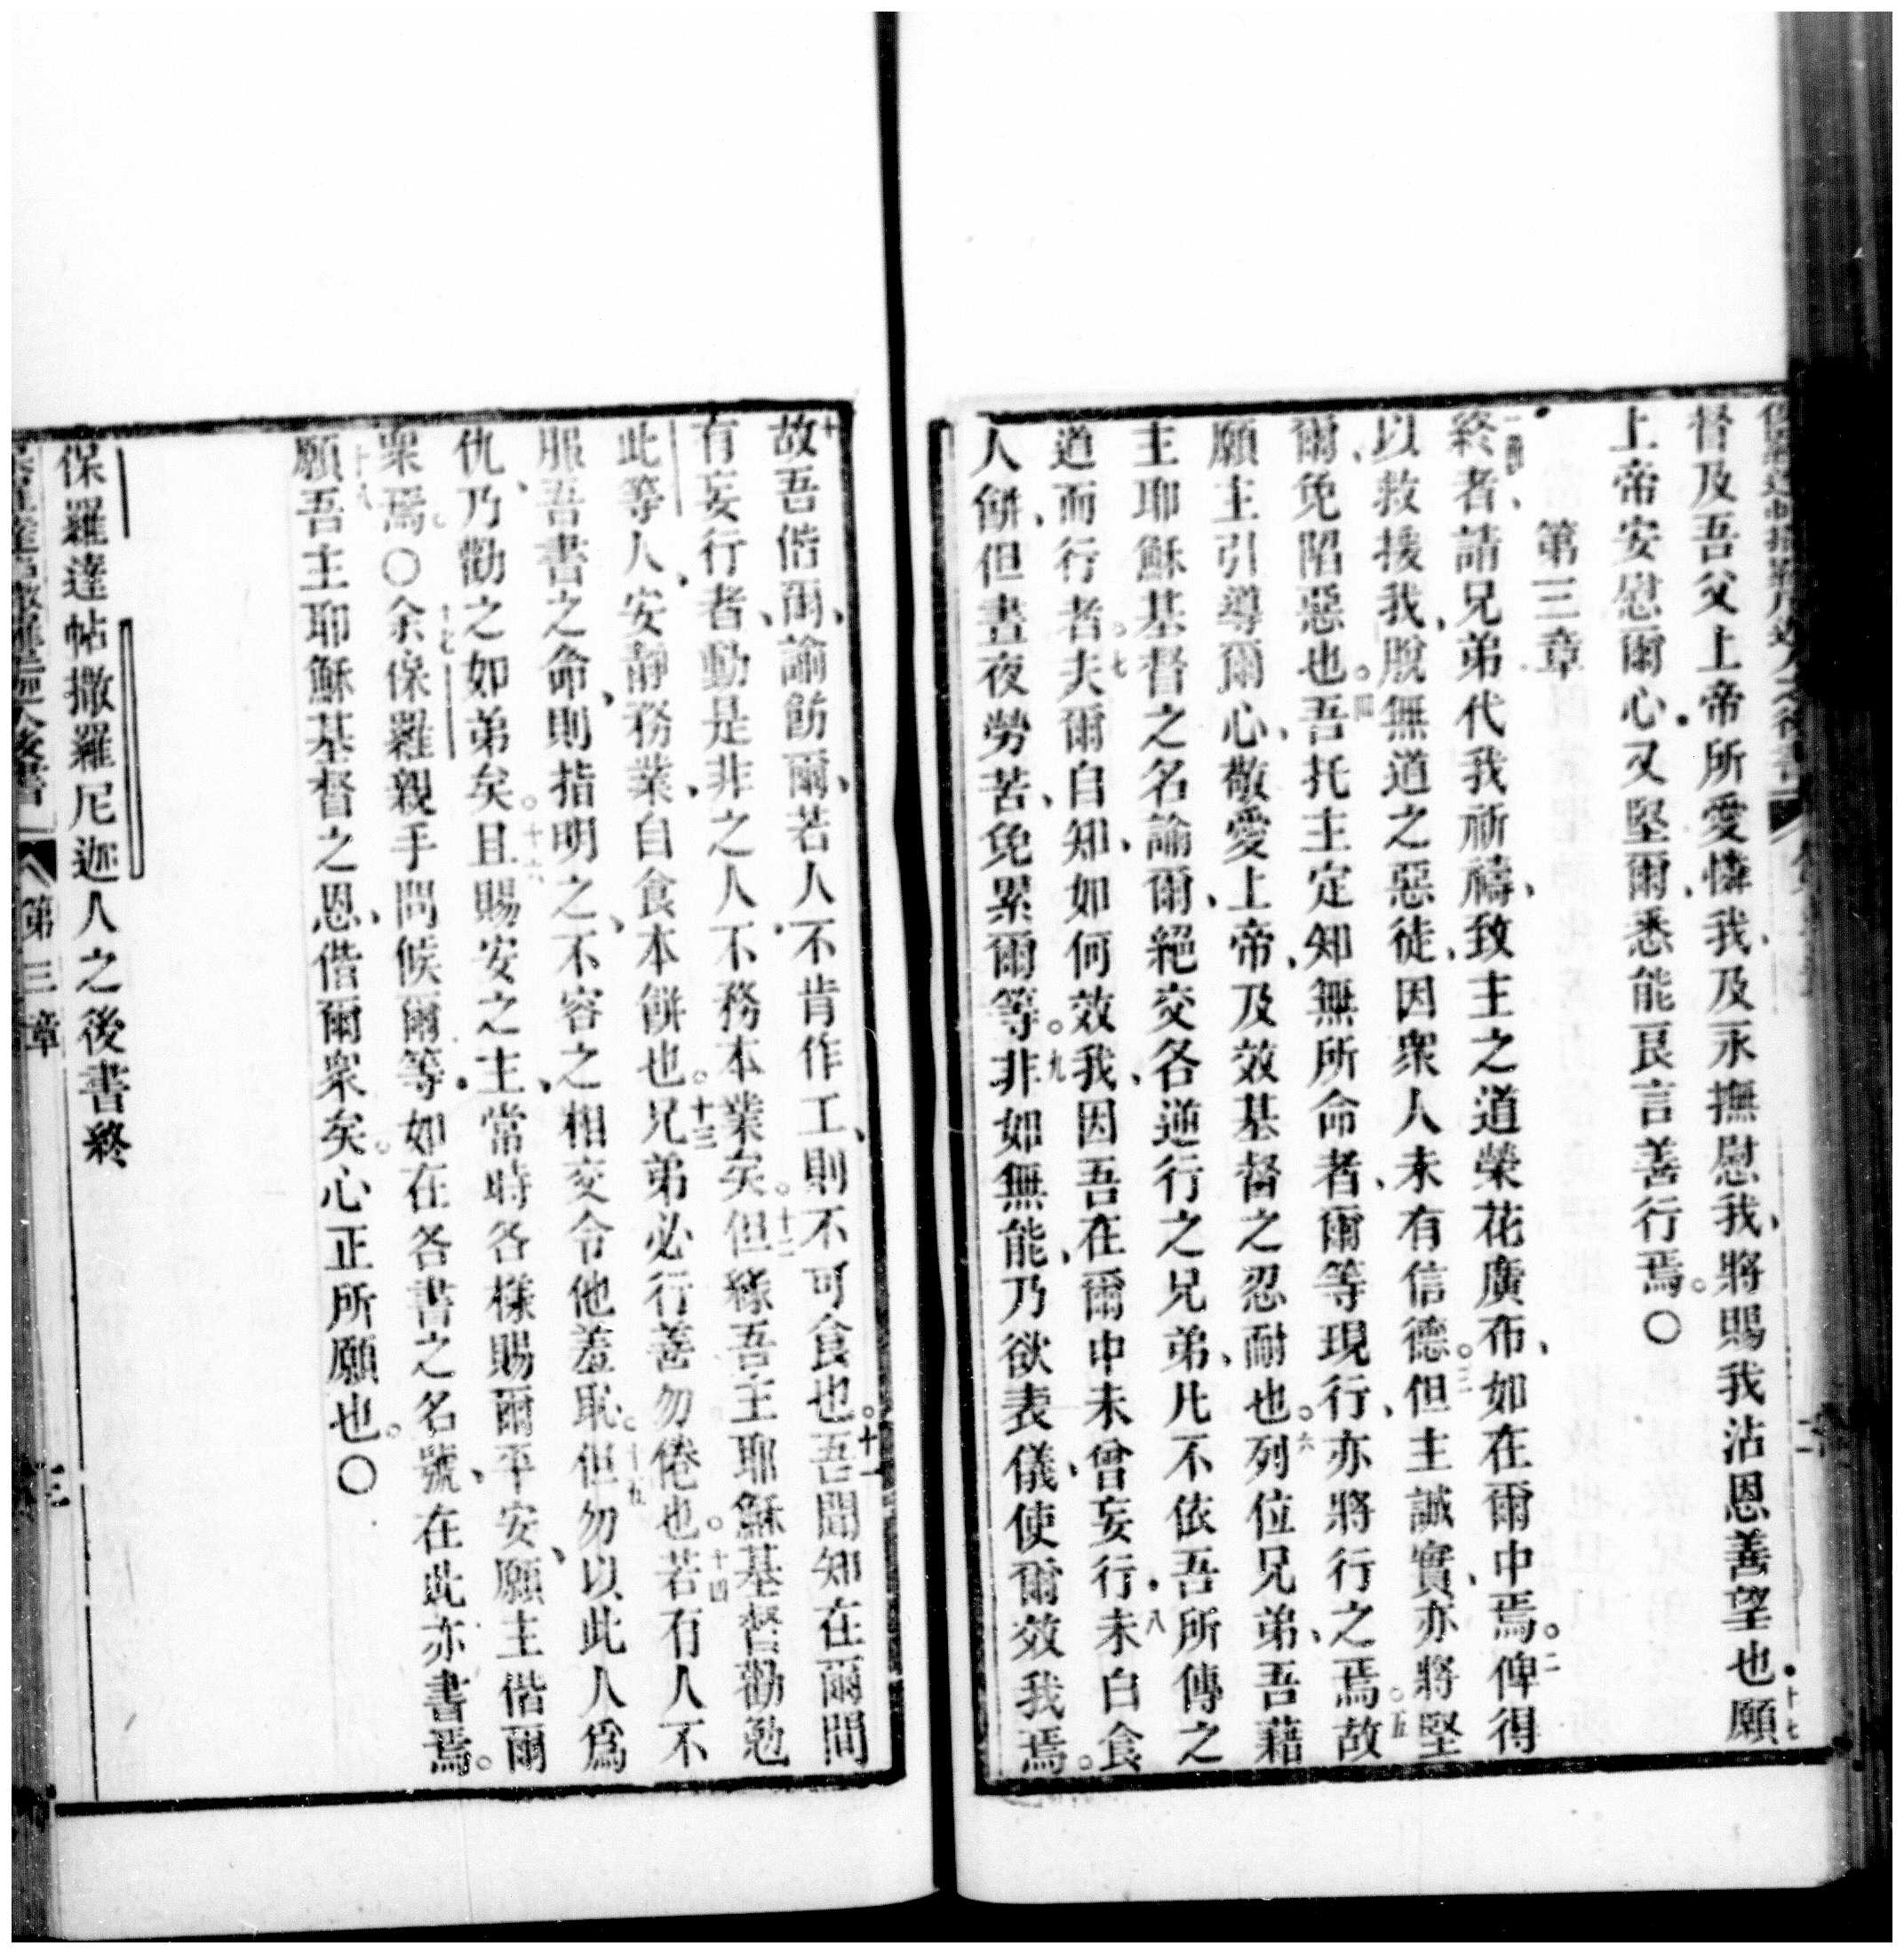 督及吾父上帝所愛憐我、及永撫慰我、將賜我沾恩善望也十七願
上帝安慰爾心又堅爾、悉能艮言善行焉。〇
第三章
一終者、請兄弟代我祈禱、致主之道榮花廣布、如在爾中焉。二俾得
以救援我、脫無道之惡徒、因衆人未有信德。三但主誠實、亦將堅
爾、免陷惡也。四吾托主定知無所命者、爾等現行、亦將行之焉。五故
願主引導爾心、敬愛上帝、及效基督之忍耐也。六列位兄弟、吾藉
主耶穌基督之名諭爾、絕交各逆行之兄弟、凡不依吾所傳之
道而行者。七夫爾自知、如何效我、因吾在爾中未曾妄行。八未白食
人餅、但晝夜勞苦、免累爾等。九非如無能、乃欲表儀、使爾效我焉。
十故吾偕爾、諭飭爾、若人不肯作工、則不可食也。十一吾聞知在爾間
有妄行者、動是非之人、不務本業矣。十二但緣吾主耶穌基督勸勉
此等人、安靜務業、自食本餅也。十三兄弟必行善勿倦也。十四若有人不
服吾書之命、則指明之、不容之相交令他羞恥。十五但勿以此人爲
仇、乃勸之如弟矣。十六且賜安之主、當時各樣賜爾平安、願主偕爾
衆焉。〇十七余保羅親手問候爾等、如在各書之名號、在此亦書焉。
十八願吾主耶穌基督之恩、偕爾衆矣。心正所願也。〇
保羅達帖撒羅尼迦人之後書終
第三章
三